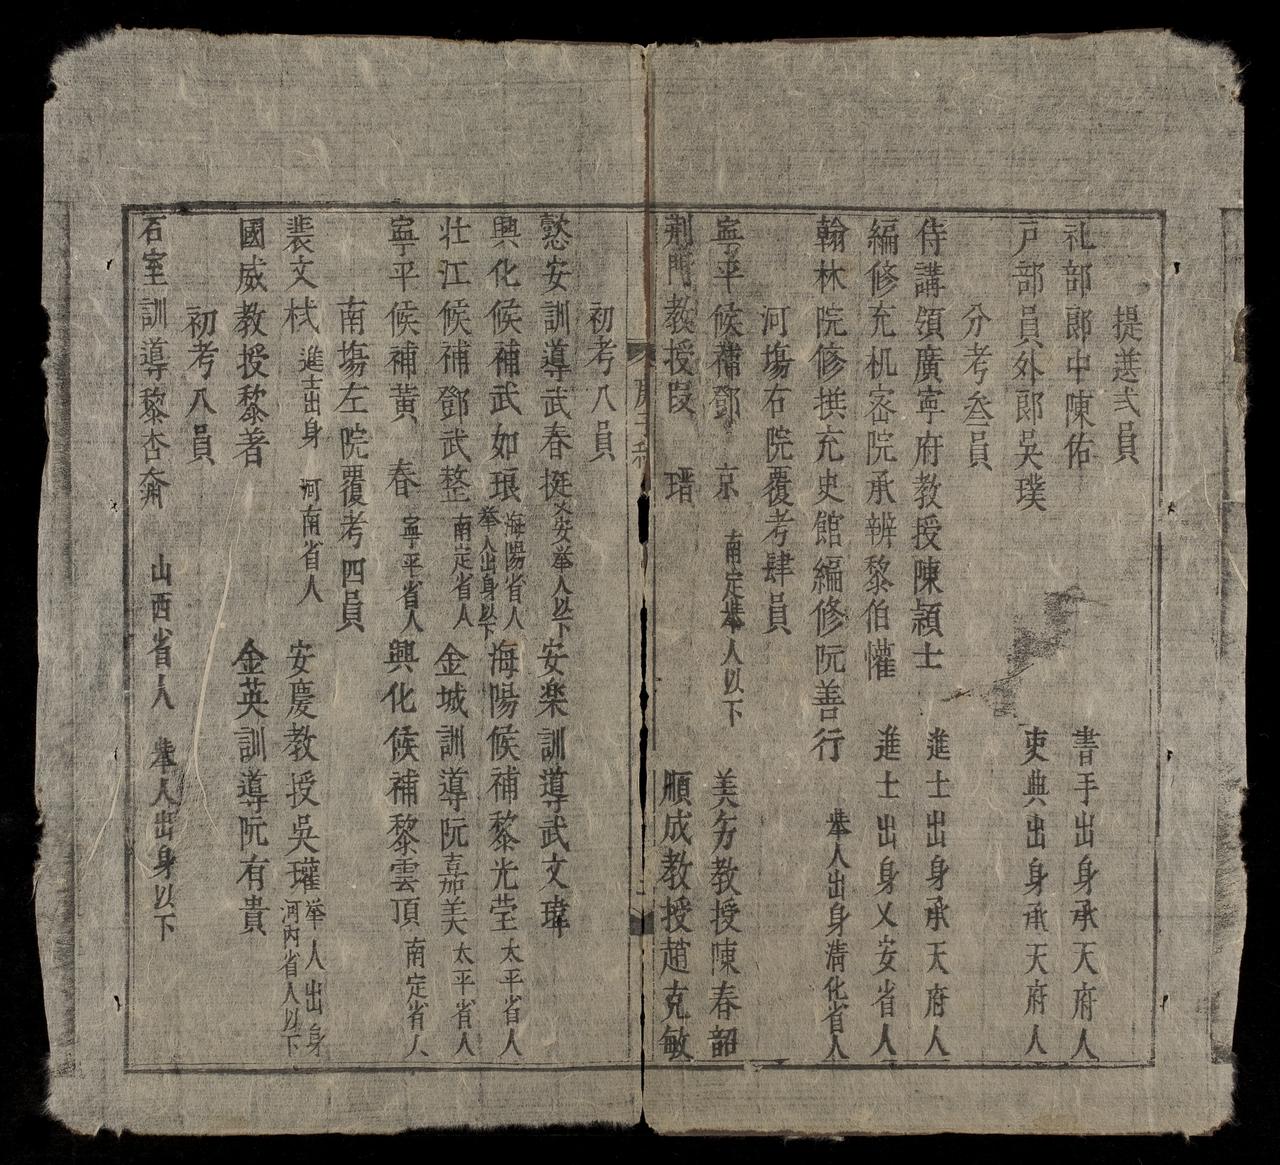 提選弍員
礼部郎中陳佑 書手出身承天府人
戸部員外郎吳璞 吏典出身承天府人
分考叁員
侍講領廣寧府教授陳潁士 進士出身承天府人
編修充机宻院承辨黎伯懽 進士出身乂安省人
翰林院修撰充史館編修阮善行 举人出身清化省人
河塲右院覆考肆員
寧平候補鄧京 南定举人以下 美努教授陳春韶
荆門教授段㻸 順成教授趙克敏
初考八員
懿安訓導武春挺 乂安举人以下 安楽訓導武文瑋
興化候補武如琅 海陽省人举人出身以下 海陽候補黎光瑩 太平省人
壮江候補鄧武整 南定省人 金城訓導阮嘉美 太平省人
寧平候補黃春 寧平省人 興化候補黎雲頂 南定省人
南塲左院覆考四員
裴文栻 進士出身 河南省人 安慶教授吳瓘 举人出身河内省人以下
國威教授黎著 金英訓導阮有貴
初考八員
石室訓導黎杏 山西省人 举人出身以下